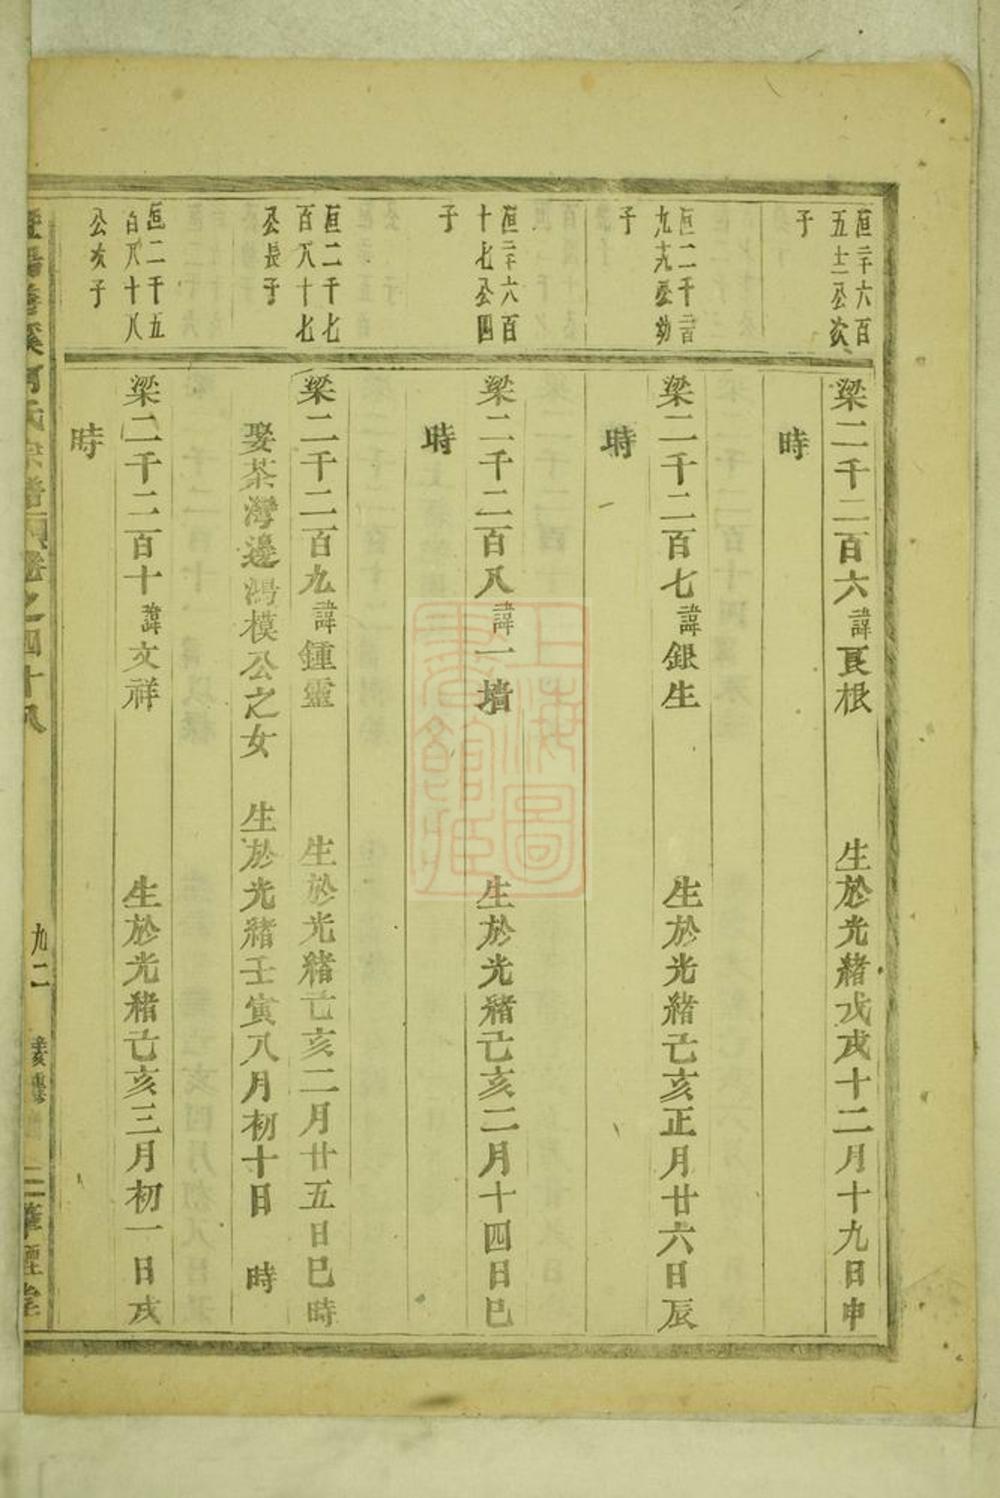 恒二千六百
五十二公次
子
梁二千二百六諱良根
生於光緒戊戌十二月十九日申
時
恒二千六百
九十九公幼
子
梁二千二百七諱銀生
生於光緒己亥正月廿六日辰
時
恒二千六百
十七公四
子
梁二千二百八諱一墻
生於光緒己亥二月十四日巳
時
恒二千七
百八十七
公長子
梁二千二百九諱鍾靈
生於光緒己亥二月廿五日巳時
娶茶灣邊湯模公之女
生於光緒壬寅八月初十日
時
恒二千五
百八十八
公次子
梁二千二百十諱文祥
生於光緒己亥三月初一日戌
時
溪何氏宗譜
卷之四十八
九二
上海圖書館藏